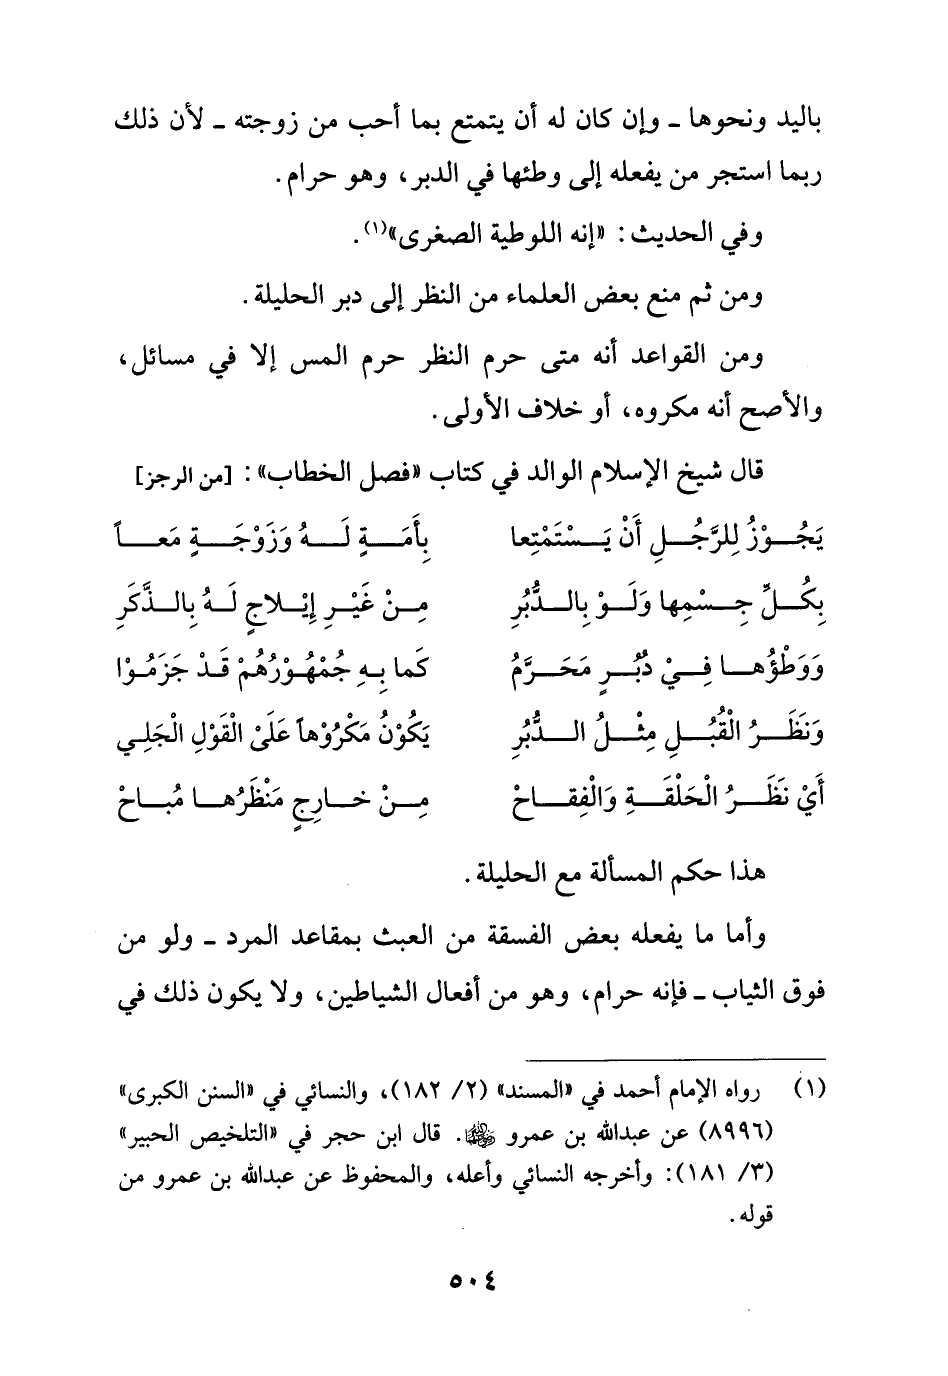 باليد ونحوها ـ وإن كان له أن يتمتع بما أحب من زوجته ـ لأن ذلك
ربما استجر من يفعله إلى وطئها في الدبر، وهو حرام.
وفي الحديث: «إنه اللوطية الصغرى»(١).
ومن ثم منع بعض العلماء من النظر إلى دبر الحليلة.
ومن القواعد أنه متى حرم النظر حرم المس إلا في مسائل،
والأصح أنه مكروه، أو خلاف الأولى.
قال شيخ الإسلام الوالد في كتاب «فصل الخطاب»: [من الرجز]
يَجُوْزُ لِلرَّجُلِ أَنْ يَسْتَمْتِعا بِأَمَةٍ لَهُ وَزَوْجَةٍ مَعاً
بِكُلِّ جِسْمِها وَلَوْ بِالدُّبُرِ مِنْ غَيْرِ إِيْلاجٍ لَهُ بِالذَّكَرِ
وَوَطْؤُها فِيْ دُبُرٍ مَحَرَّمُ كَما بِهِ جُمْهُوْرُهُمْ قَدْ جَزَمُوْا
وَنَظَرُ الْقُبُلِ مِثْلُ الدُّبُرِ يَكُوْنُ مَكْرُوْهاً عَلَىْ الْقَوْلِ الْجَلِي
أَيْ نَظَرُ الْحَلْقَةِ وَالْفِقاحْ مِنْ خارِجٍ مَنْظَرُها مُباحْ
هذا حكم المسألة مع الحليلة.
وأما ما يفعله بعض الفسقة من العبث بمقاعد المرد ـ ولو من
فوق الثياب ـ فإنه حرام، وهو من أفعال الشياطين، ولا يكون ذلك في
(١) رواه الإمام أحمد في «المسند» (٢/ ١٨٢)، والنسائي في «السنن الكبرى»
(٨٩٩٦) عن عبدالله بن عمرو ﵄. قال ابن حجر في «التلخيص الحبير»
(٣/ ١٨١): وأخرجه النسائي وأعله، والمحفوظ عن عبدالله بن عمرو من
قوله.
٥٠٤